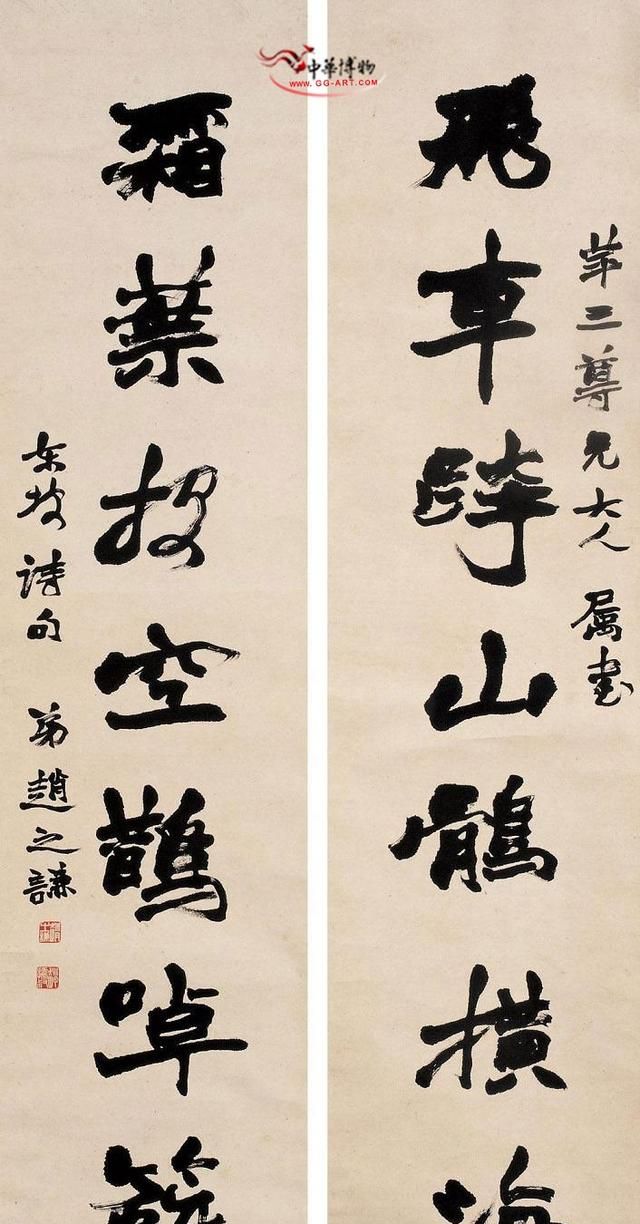 中華博物
WWW.GG-ART.COM
三尊兄大人 属書
飛車跨山鶻橫海
霜葉投空鵲啅
東坡詩句 弟趙之謙